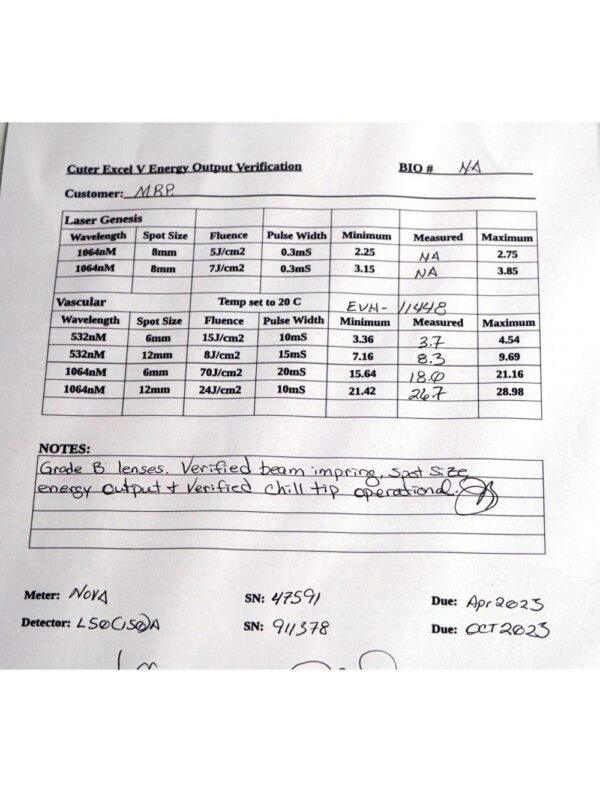 Cuter Excel V Energy Output Verification BIO # NA
Customer: MRP
Laser Genesis
Wavelength Spot Size Fluence Pulse Width Minimum Measured Maximum
1064nM 8mm 5J/cm2 0.3mS 2.25 NA 2.75
1064nM 8mm 7J/cm2 0.3mS 3.15 NA 3.85
Vascular Temp set to 20 C EVH- 11448
Wavelength Spot Size Fluence Pulse Width Minimum Measured Maximum
532nM 6mm 15J/cm2 10mS 3.36 3.7 4.54
532nM 12mm 8J/cm2 15mS 7.16 8.3 9.69
1064nM 6mm 70J/cm2 20mS 15.64 18.0 21.16
1064nM 12mm 24J/cm2 10mS 21.42 26.7 28.98
NOTES:
Grade B lenses. Verified beam impring, spot size,
energy output + Verified chill tip operational.
Meter: NOVA SN: 47591 Due: Apr 2023
Detector: L50(150)A SN: 911378 Due: OCT 2023